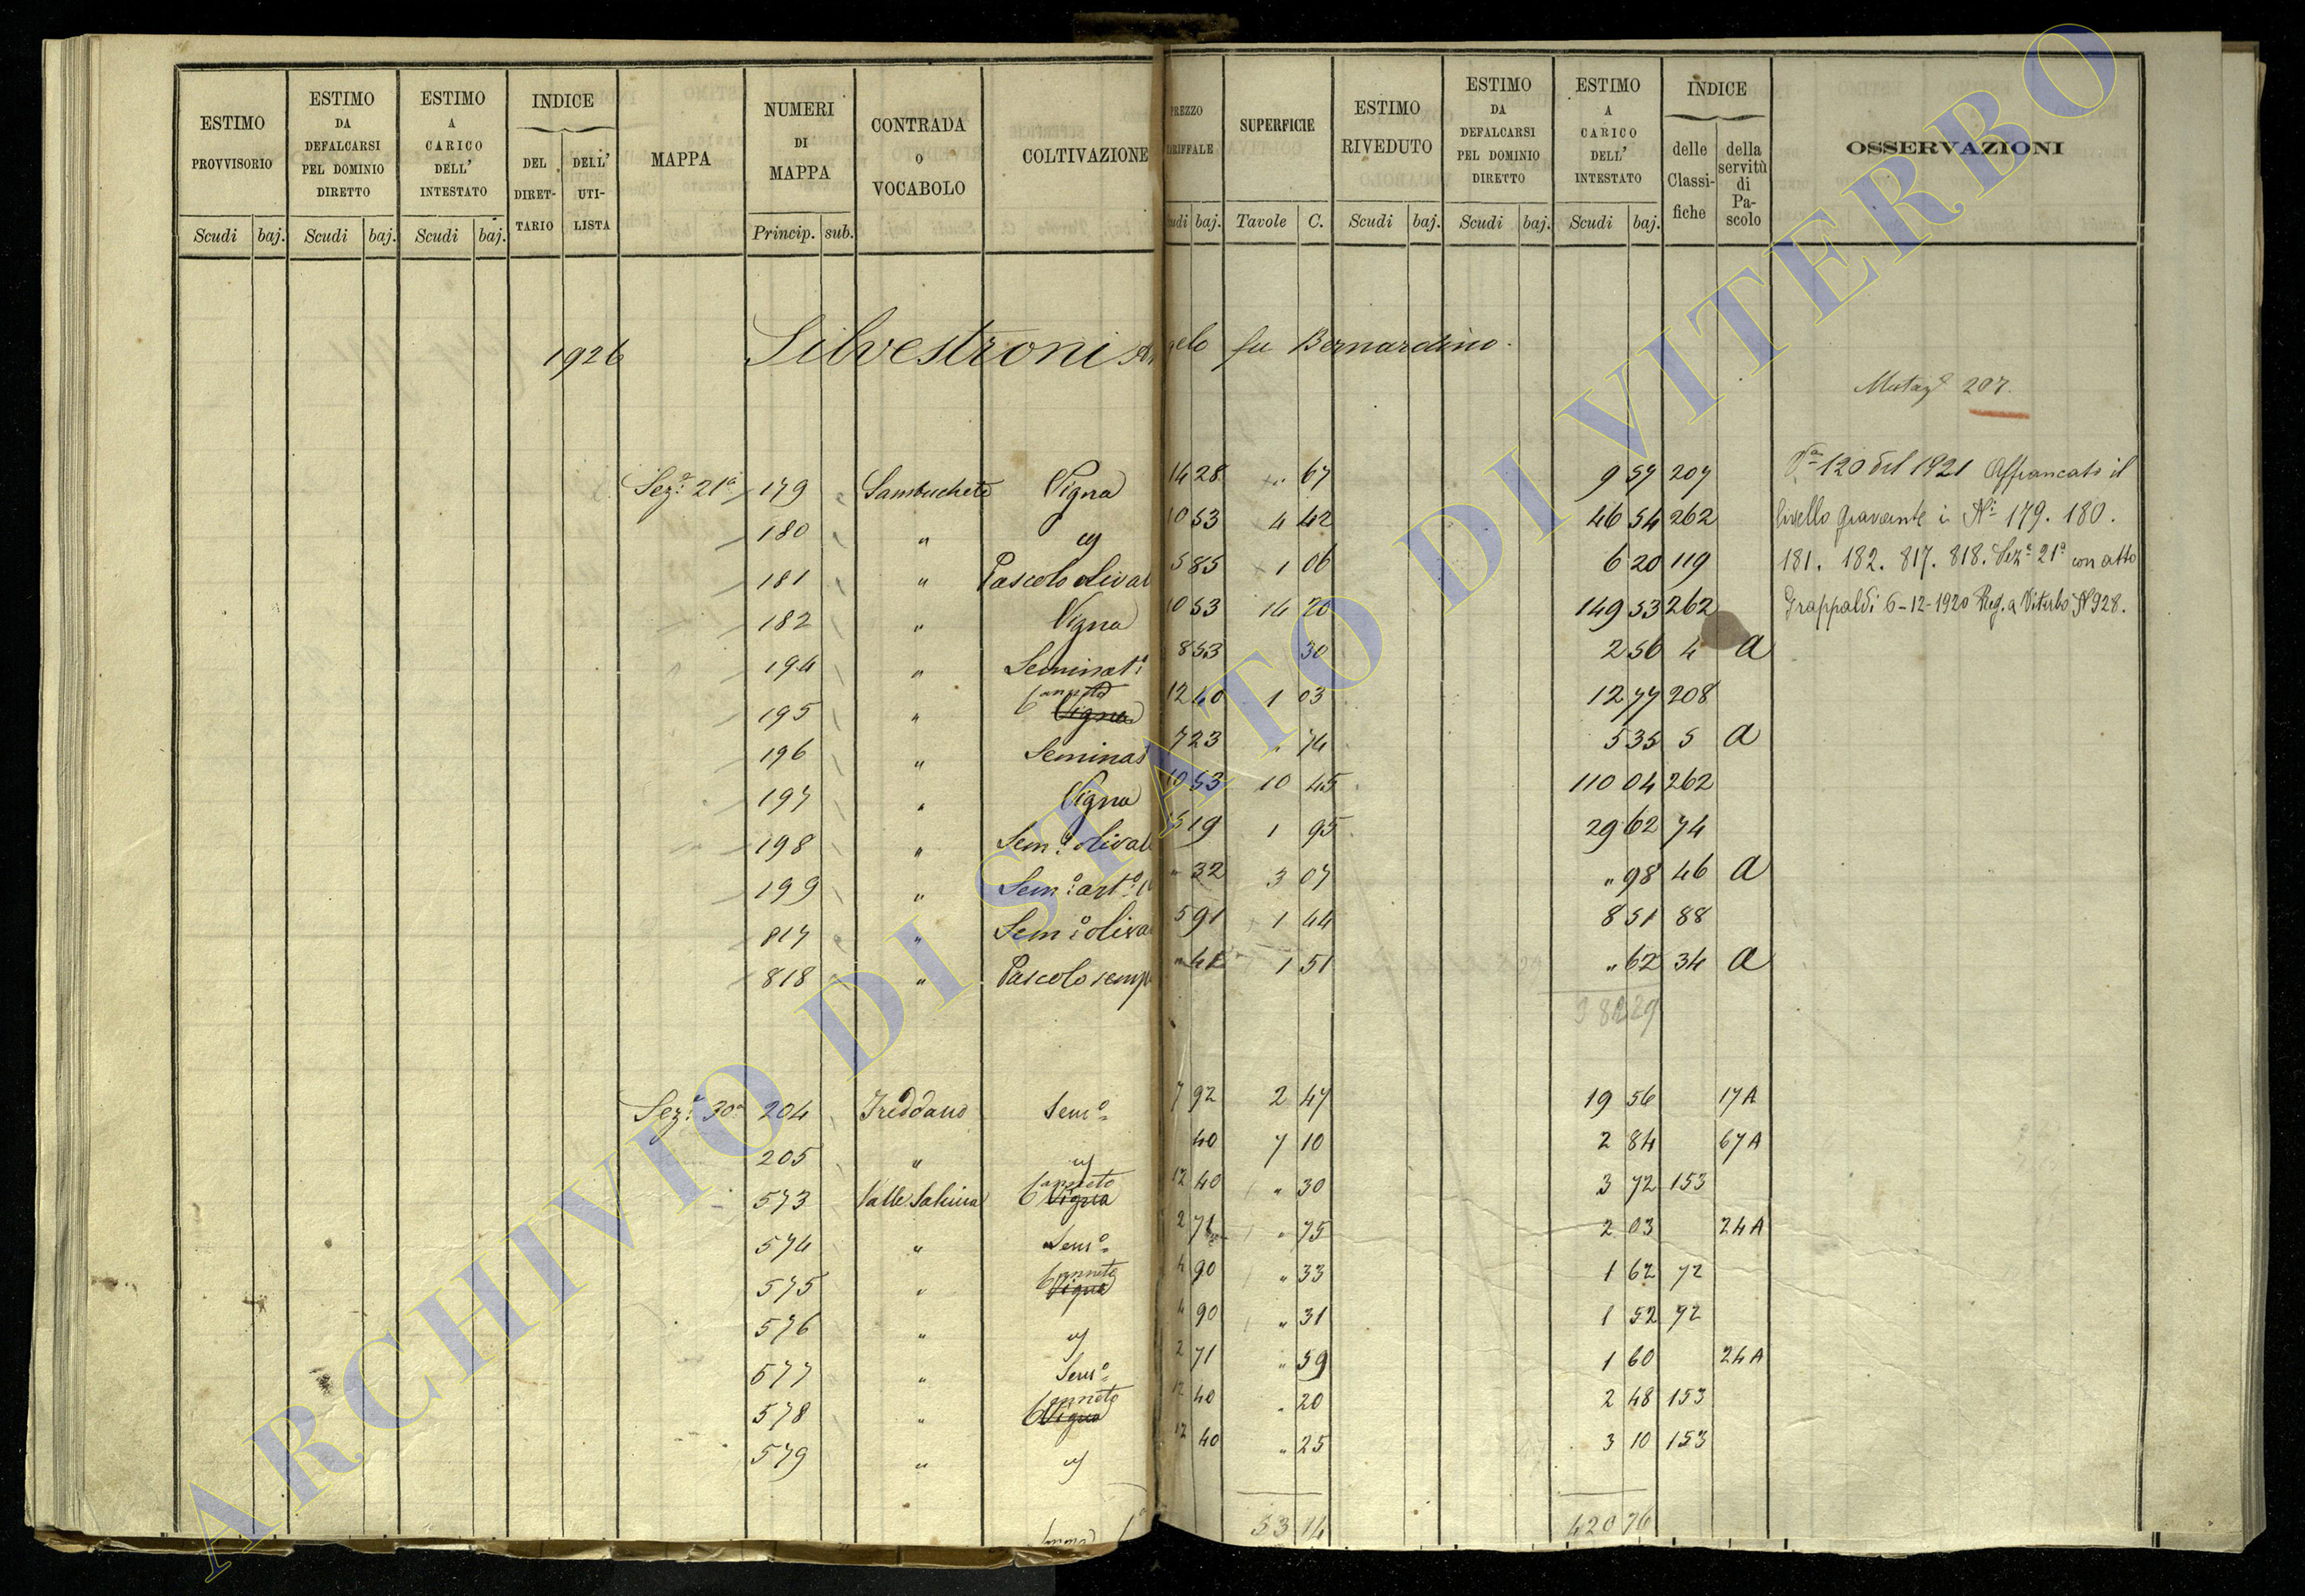 ESTIMO PROVVISORIO Scudi baj.
ESTIMO DA DEFALCARSI PEL DOMINIO DIRETTO Scudi baj.
ESTIMO A CARICO DELL' INTESTATO Scudi baj.
INDICE DEL DIRET-TARIO DELL' UTI-LISTA
MAPPA
NUMERI DI MAPPA Princip. sub.
CONTRADA O VOCABOLO
COLTIVAZIONE
PREZZO TARIFFALE Scudi baj.
SUPERFICIE Tavole C.
ESTIMO RIVEDUTO Scudi baj.
ESTIMO DA DEFALCARSI PEL DOMINIO DIRETTO Scudi baj.
ESTIMO A CARICO DELL' INTESTATO Scudi baj.
INDICE delle Classi-fiche della servitù di Pa-scolo
OSSERVAZIONI
1926 Silvestroni Angelo fu Bernardino.
Mutaz.e 207.
Sez.e 21a 179 Sambucheto Vigna 14 28 " 67 9 57 207
180 " " 10 53 4 42 46 54 262
181 " Pascolo olivat 5 85 1 06 6 20 119
182 " Vigna 10 53 14 20 149 53 262
194 " Seminat.o 8 53 30 2 56 4 a
195 " Canneto Vigna 12 40 1 03 12 77 208
196 " Seminat 7 23 " 74 5 35 5 a
197 " Vigna 10 53 10 45 110 04 262
198 " Sem.o olivat 15 19 1 95 29 62 74
199 " Sem.o art.o " 32 3 07 " 98 46 a
817 " Sem.o oliva 5 91 1 44 8 51 88
818 " Pascolo semp " 41 1 51 " 62 34 a
382 29
V.a 120 del 1921 Affrancato il
livello gravante i N.i 179. 180.
181. 182. 817. 818. Sez.e 21a con atto
Grappaldi 6-12-1920 Reg. a Viterbo N 928.
Sez.e 30a 204 Freddano Sem.o 7 92 2 47 19 56 17A
205 " " 40 7 10 2 84 67A
573 Valle Canneto Vigna 12 40 " 30 3 72 153
574 " Sem.o 2 71 " 75 2 03 24A
575 " Canneto Vigna 4 90 " 33 1 62 72
576 " " 4 90 " 31 1 52 72
577 " Sem.o 2 71 " 59 1 60 24A
578 " Canneto Vigna 12 40 " 20 2 48 153
579 " " 12 40 " 25 3 10 153
53 14 420 76
ARCHIVIO DI STATO DI VITERBO